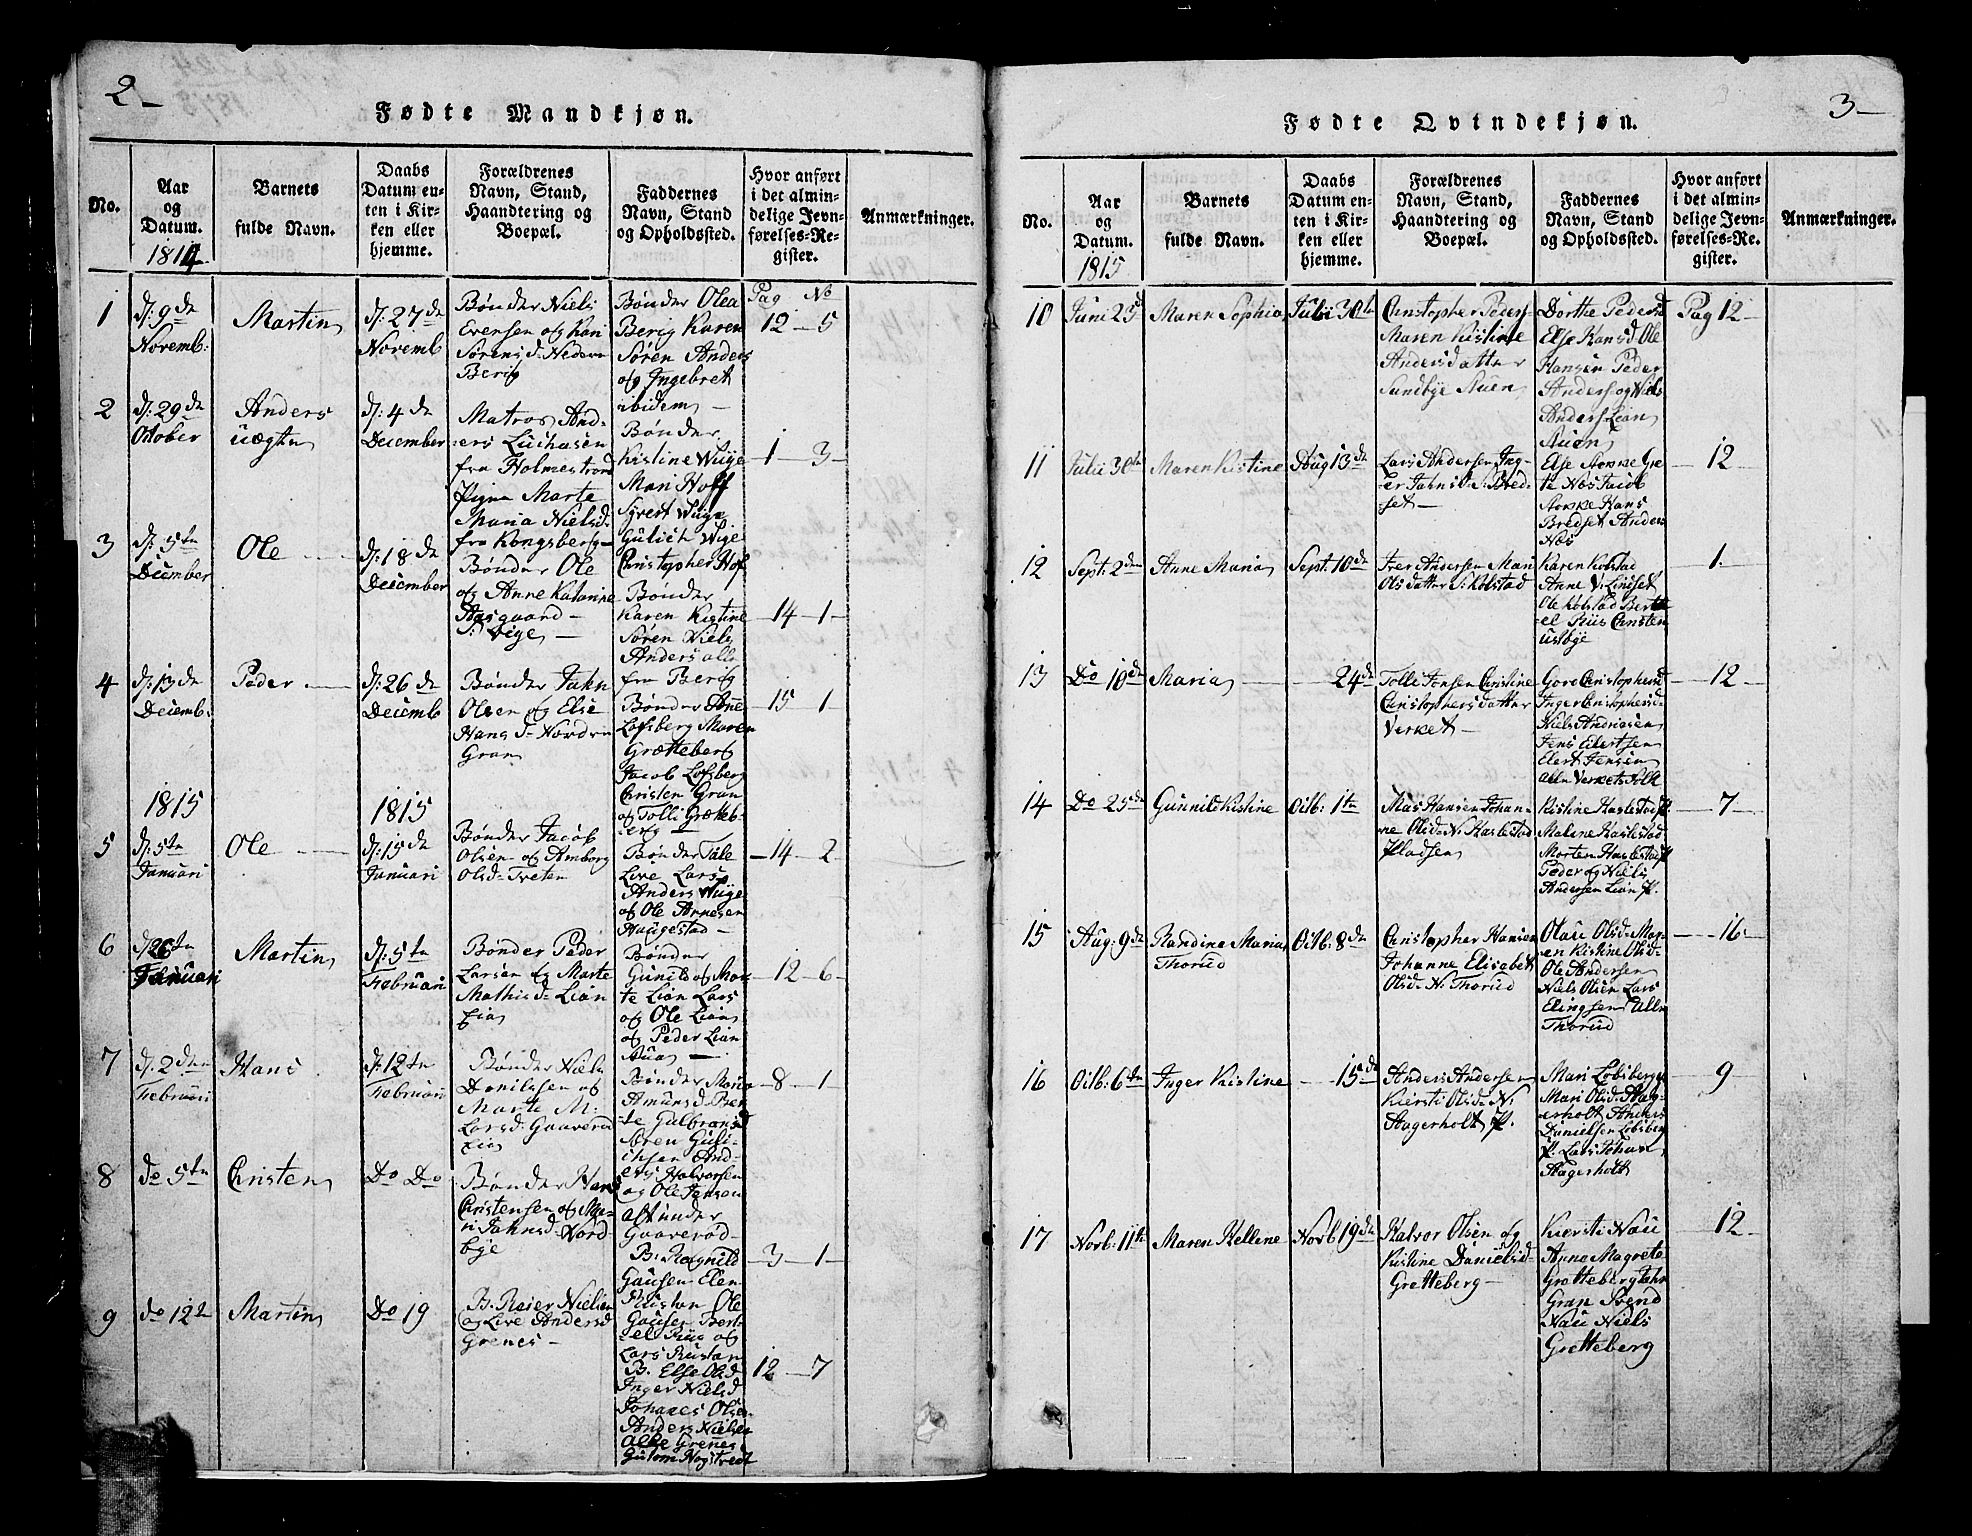 2
Fødte Mandkjøn.
No.
Aar og Datum.
1814
Barnets fulde Navn.
Daabs Datum enten i Kirken eller hjemme.
Forældrenes Navn, Stand, Haandtering og Boepæl.
Faddernes Navn, Stand og Opholdssted.
Hvor anført i det almindelige Jevnførelses-Register.
Anmærkninger.
Pag No
1
d: 9de
Novemb:
Martin
d: 27de
Novemb
Bønder Niels
Evensen og Kari
Sørensd: Nedern
Berig
Bønder Olea
Berig Karen
Søren Anders
og Ingebret
ibidem
12 5
2
d: 29de
Oktober
Anders
uægte
d: 4de
December
Matros And-
ers
fra Holmestrand
Pigen Marte
Maria Nielsd:
fra Kongsberg
Bønder
Kistine Wiige
Mari Hoff
Syvert Wiige
Wige
Christopher Hof
1 3
3
d: 5te
December
Ole
d: 18de
December
Bønder Ole
og Anne Katarine
Aasgaard
Vige
Bønder
Karen Kistine
Søren Niels
Anders alle
fra Berig
14 1
4
d: 13de
Decemb:
Peder
d: 26de
Decemb
Bønder Jahn
Olsen og Else
Hans d: Nordre
Gran
Bønder Ane
Lofsberg Maren
Grætteberg
Jacob Lofsberg
Christen Gran
og Tolli Gretteb-
erg
15 1
1815
1815
5
d: 5te
Januari
Ole
d: 15de
Januari
Bønder Jacob
Olsen og Amborg
Olsd: Tveten
Bønder Tale
Live Lars
Anders Wiige
og Ole Arnesen
Haugestad
14 2
6
Januari
Martin
d: 5te
Februari
Bønder Peder
Larsen og Marte
Mathisd: Lian
Eia
Bønder
Gunild og Mar-
te Lian Lars
og Ole Lian
og Peder Lian
12 6
7
d: 2den
Februari
Hans
d: 12te
Februari
Bønder Niels
Danielsen og
Marte M:
Larsd: Gaaverød
Eia
Bønder Maria
Amunsd: Ber-
te Gulbransd
Søren Guli-
chsen And-
ers Halvorsen
og Ole Jensen
alt under
Gaaverød
8 1
8
de 5te
Christen
Do Do
Bønder Hans
Christensen og Ma-
ri Jahnsd: Nord-
bye
B. Ragnild
Gausen Elen
Rustan Ole
Gausen Bert-
el Ruu og
Lars Rustan
3 1
9
do 12te
Martin
Do 19
B. Reier Nielsen
og Live Andersd
Grenes
B. Else Olsd
Inger Nielsd
Johanes Olsen
Anders Nielsen
alle Grenes
Gutom Hogstvedt
12 7
3
Fødte Qvindekjøn.
No.
Aar og Datum.
1815
Barnets fulde Navn.
Daabs Datum enten i Kirken eller hjemme.
Forældrenes Navn, Stand, Haandtering og Boepæl.
Faddernes Navn, Stand og Opholdssted.
Hvor anført i det almindelige Jevnførelses-Re. gister.
Anmærkninger.
10
Juni 25d
Maren Sophia
Julii 30te
Christopher Peders-
Maren Kistine
Andersdatter
Sundbye
Dorthe Pedersd
Else Hansd Ole
Hansen Peder
Anders og Niels
Anders Lian
Pag 12
11
Julii 30te
Maren Kistine
Aug 13de
Lars Andersen Ing-
er Jahnsd: S: Bred-
set
Else Aspke Gre
te Næs
Hans
Bredset Anders
Næs
12
12
Sept: 2den
Anne Maria
Sept: 10de
Iver Andersen Mari
Olsdatter S: Kolstad
Karen Kolstad
Anne V: Linset
Ole Kolstad Bert
el Ruus Christen
Ustbye
1
13
Do 10de
Maria
24de
Tolli Jonsen Christine
Christophersdatter
Verket
Gore Christophersd
Inger Christophersd-
Niels Andriasen
Jens Eilertsen
Elert Jensen
alle Verkets folk
12
14
Do 25de
Gunnild Kistine
Octb: 1te
Mas Hansen Johan-
ne Olsd: N: Hastestad
Pladsen
Kistine Hastestad P
Maline Hastestad
Morten Hastestad P
Peder og Niels
Andersen Lian P.
7
15
Aug: 9de
Randine Maria
Thorud
Octb: 8de
Christopher Hansen
Johanne Elisabet
Olsd: N: Thorud
Olau Olsd: Mar-
en Kistine Olsd-
Ole Andersen
Niels Olsen Lars
Elingsen Alle
Thorud
16
16
Octb: 6te
Inger Kistine
15de
Anders Andersen
Kiersti Olsd: N:
Hagerholt P.
Mari Lobsberg
Mari Olsd: Hag-
erholt Anders
Danielsen Lobsberg
P. Lars Johan
Hagerholt
9
17
Novb: 11te
Maren Hellene
Novb 19de
Halvor Olsen og
Kistine Danielsd-
Gretteberg
Kiersti Nau
Anne Magrete
Gretteberg Jahn
Gran Svend
Nau Niels
Gretteberg
12